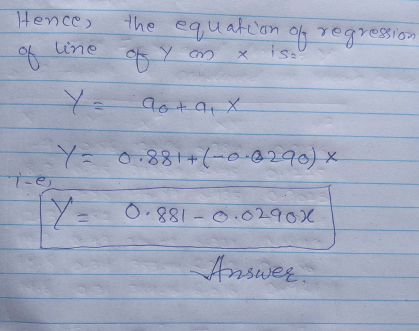 Hence, the equation of regression
of line of Y on x is:
Y = a0 + a1 X
Y = 0.881 + (-0.0290) x
i-e,
Y = 0.881 - 0.0290x
Answer.